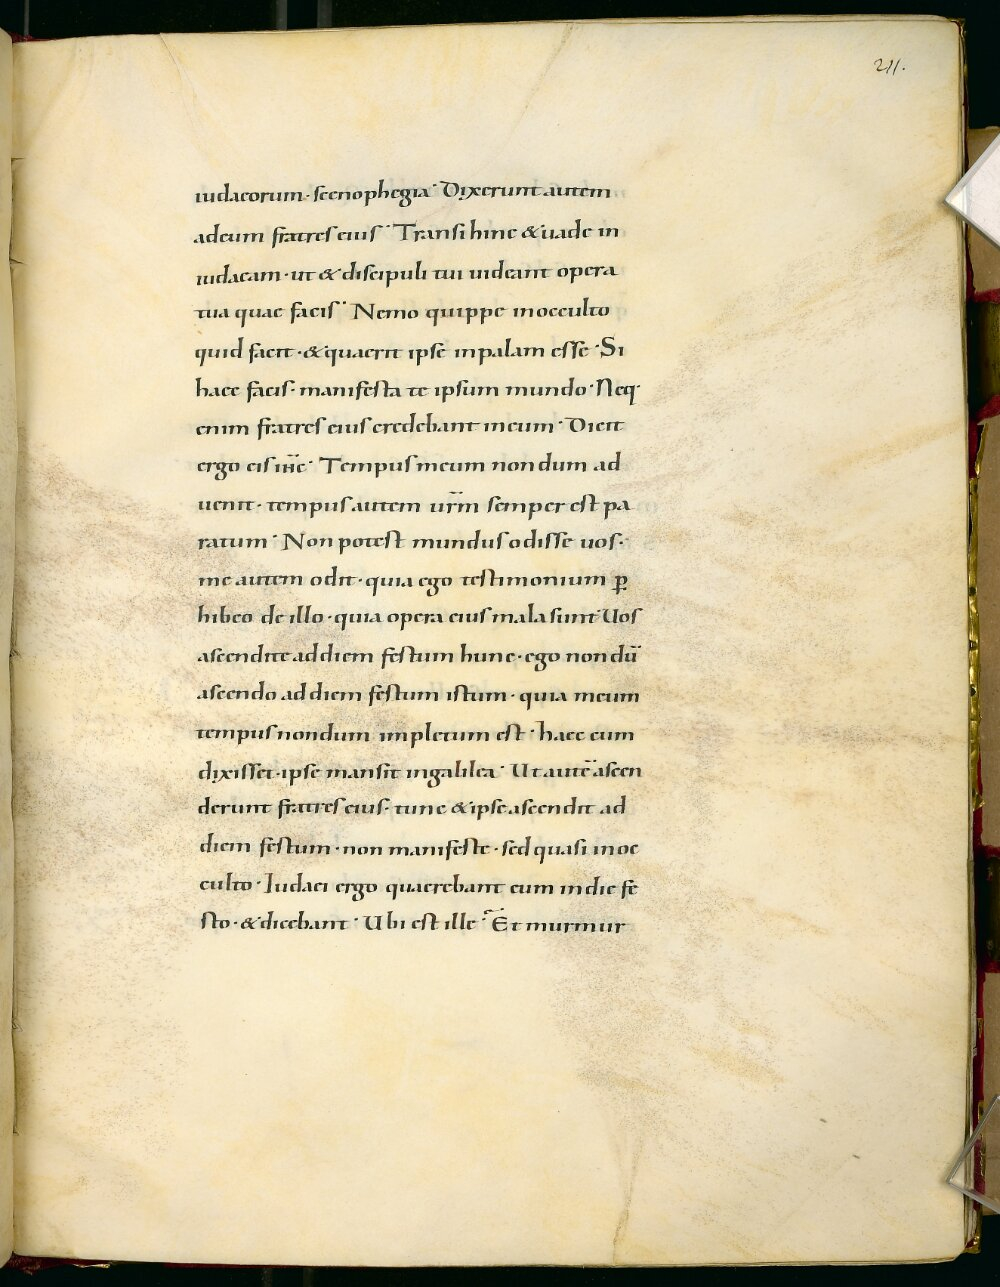 211.
iudaeorum · scenophegia · Dixerunt autem
adeum fratres eius · Transi hinc & uade in
iudaeam · ut & discipuli tui uideant opera
tua quae facis · Nemo quippe inocculto
quid facit · & quaerit ipse inpalam esse · Si
haec facis · manifesta te ipsum mundo · Neq·
enim fratres eius credebant ineum · Dicit
ergo eis ihc̅ · Tempus meum non dum ad
uenit · tempus autem ur̅m semper est pa
ratum · Non potest mundus odisse uos ·
me autem odit · quia ego testimonium ꝑ
hibeo de illo · quia opera eius mala sunt · Uos
ascendite addiem festum hunc · ego non dū
ascendo addiem festum istum · quia meum
tempus nondum impletum est · haec cum
dixisset · ipse mansit ingalilea · Ut autē ascen
derunt fratres eius · tunc & ipse ascendit ad
diem festum · non manifeste · sed quasi inoc
culto · Iudaei ergo quaerebant eum indie fe
sto · & dicebant · Ubi est ille · Et murmur